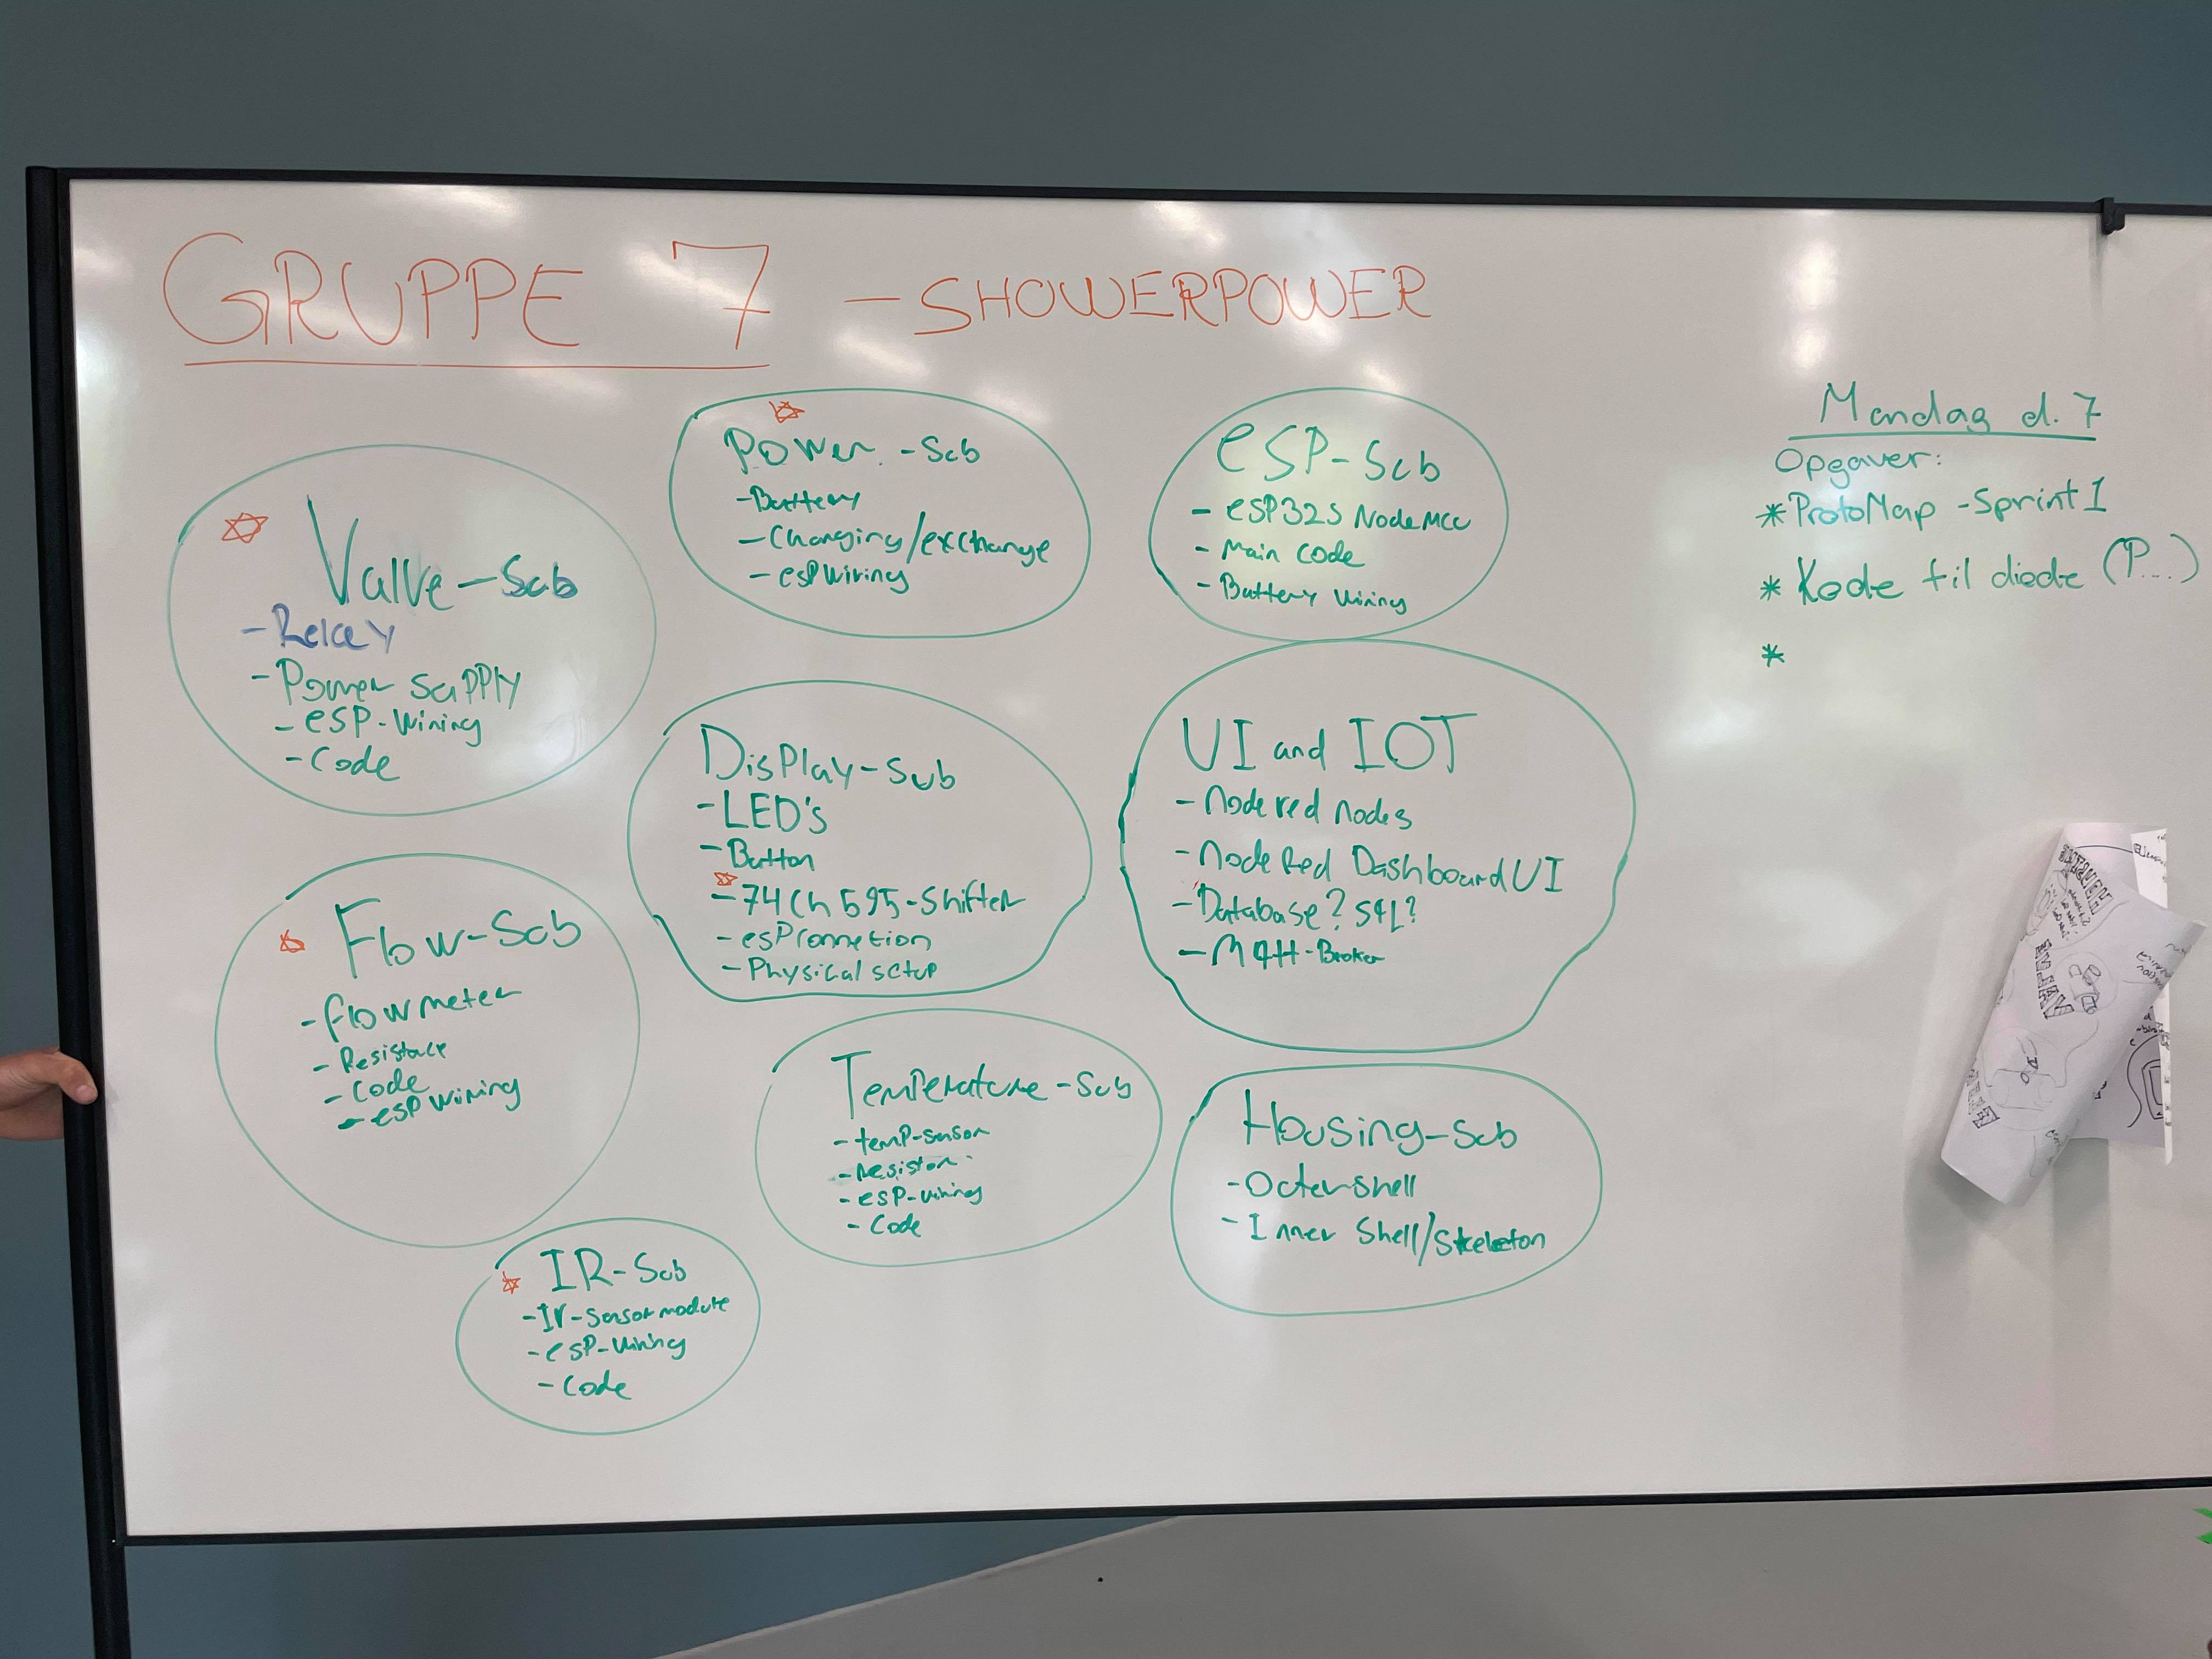 GRUPPE 7 - SHOWERPOWER
Valve-Sub
- Relay
- Power supply
- ESP-Wiring
- Code
Power-Sub
- Battery
- Charging/exchange
- esp wiring
ESP-Sub
- ESP32S NodeMCU
- Main code
- Battery wiring
Mandag d. 7
Opgaver:
* ProtoMap - Sprint 1
* Kode til diode (P...)
*
Display-Sub
- LED's
- Button
- 74Ch595-Shifter
- esp connetion
- Physical setup
UI and IOT
- Node red nodes
- Node Red Dashboard UI
- Database? SQL?
- Mqtt-Broker
Flow-Sub
- flowmeter
- Resistace
- Code
- esp wiring
Temperature-Sub
- temp-sensor
- resistor
- esp-wiring
- Code
Housing-Sub
- Outershell
- Inner Shell/Skeleton
IR-Sub
- Ir-sensor module
- esp-wiring
- Code